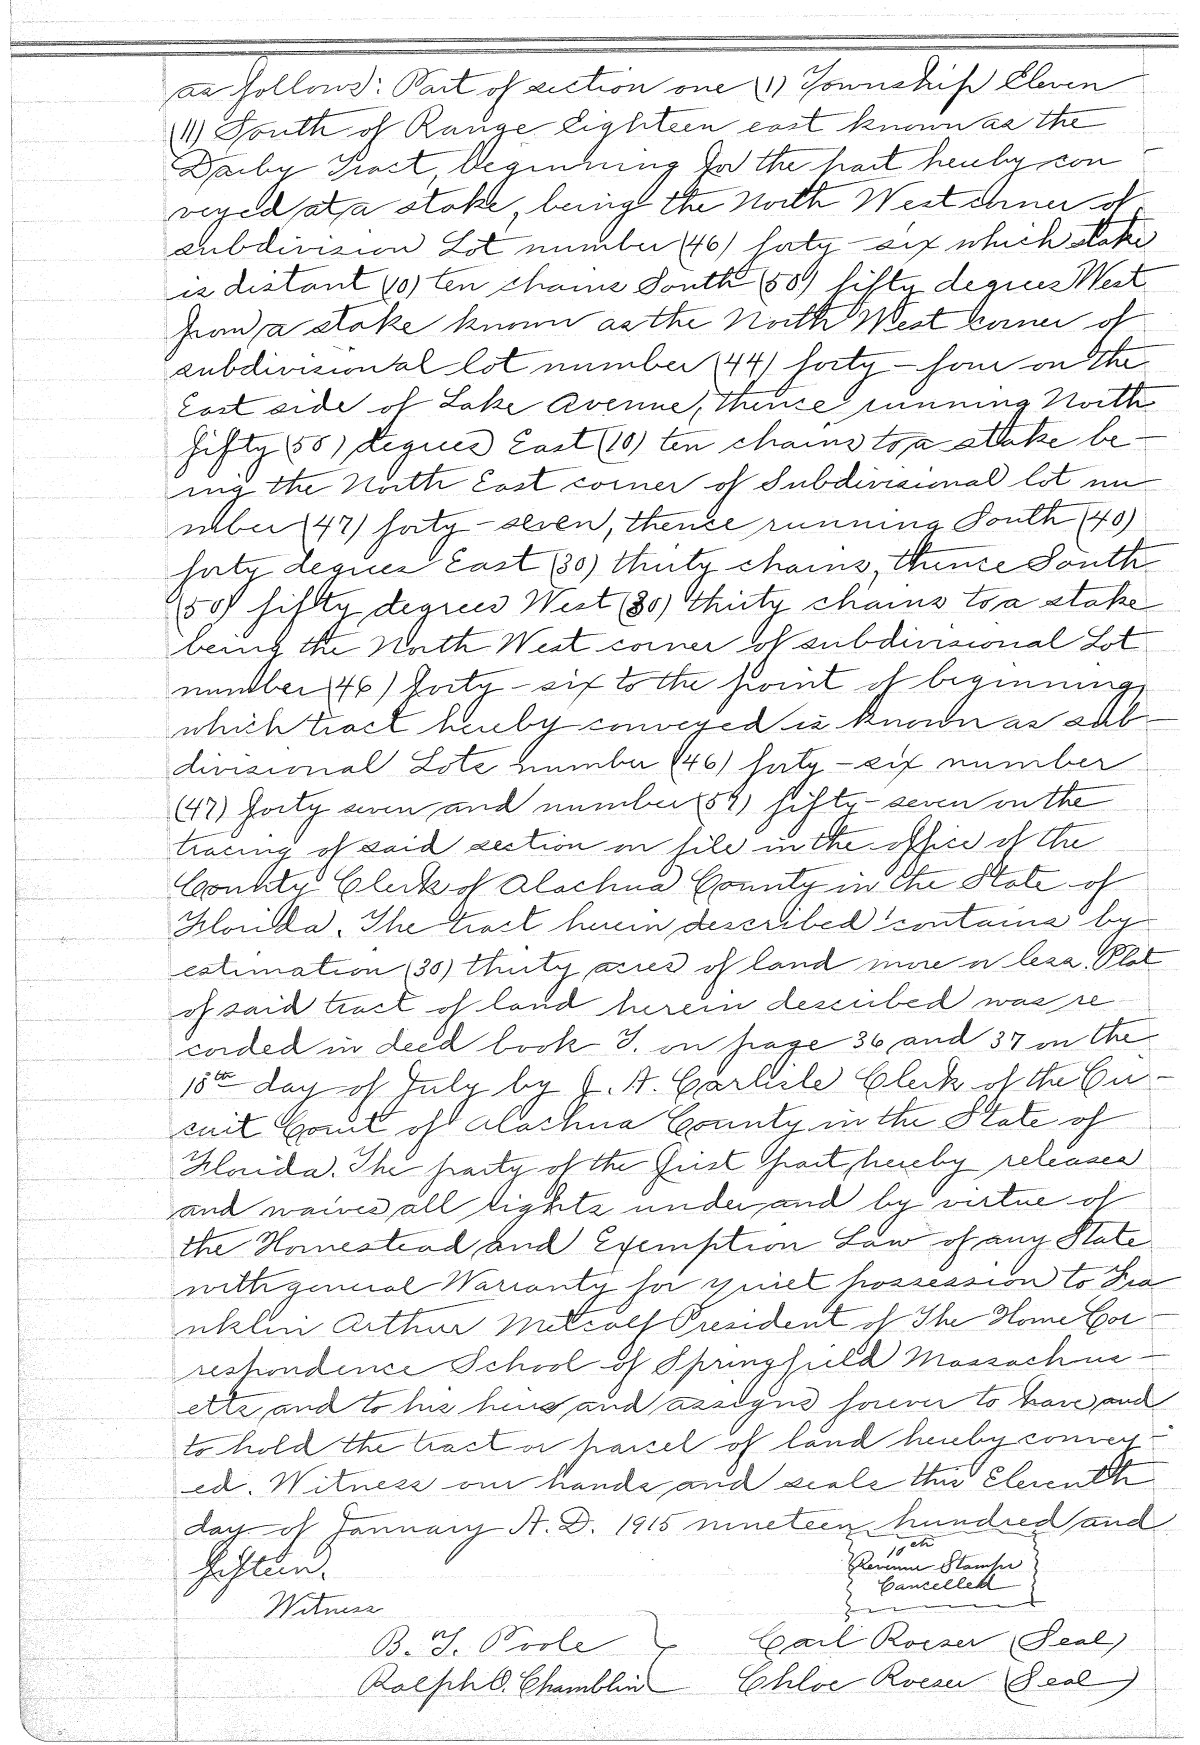 as follows: Part of section one (1) Township Eleven
(11) South of Range Eighteen east known as the
Darby Tract, beginning for the part hereby con-
veyed at a stake, being the North West corner of
subdivision Lot number (46) forty-six which stake
is distant (10) ten chains South (50) fifty degrees West
from a stake known as the North West corner of
subdivisional lot number (44) forty-four on the
East side of Lake Avenue, thence running North
fifty (50) degrees East (10) ten chains to a stake be-
ing the North East corner of Subdivisional lot nu
mber (47) forty-seven, thence running South (40)
forty degrees East (30) thirty chains, thence South
(50) fifty degrees West (30) thirty chains to a stake
being the North West corner of subdivisional Lot
number (46) forty-six to the point of beginning,
which tract hereby conveyed is known as sub-
divisional Lots number (46) forty-six number
(47) forty seven and number (57) fifty-seven on the
tracing of said section on file in the office of the
County Clerk of Alachua County in the State of
Florida. The tract herein described contains by
estimation (30) thirty acres of land more or less. Plat
of said tract of land herein described was re
corded in deed book J. on page 36 and 37 on the
18th day of July by J. A. Carlisle Clerk of the Cir-
cuit Court of Alachua County in the State of
Florida. The party of the first part, hereby releases
and waives all rights under and by virtue of
the Homestead and Exemption Law of any State
with general Warranty for quiet possession to Fra
nklin Arthur Metcalf President of The Home Cor-
respondence School of Springfield Massachus-
etts and to his heirs and assigns forever to have and
to hold the tract or parcel of land hereby convey-
ed. Witness our hands and seals this Eleventh
day of January A. D. 1915 nineteen hundred and
fifteen.
10cts
Revenue Stamps
Cancelled
Witness
B. J. Poole Carl Roeser (Seal)
Ralph O. Chamblin Chloe Roeser (Seal)